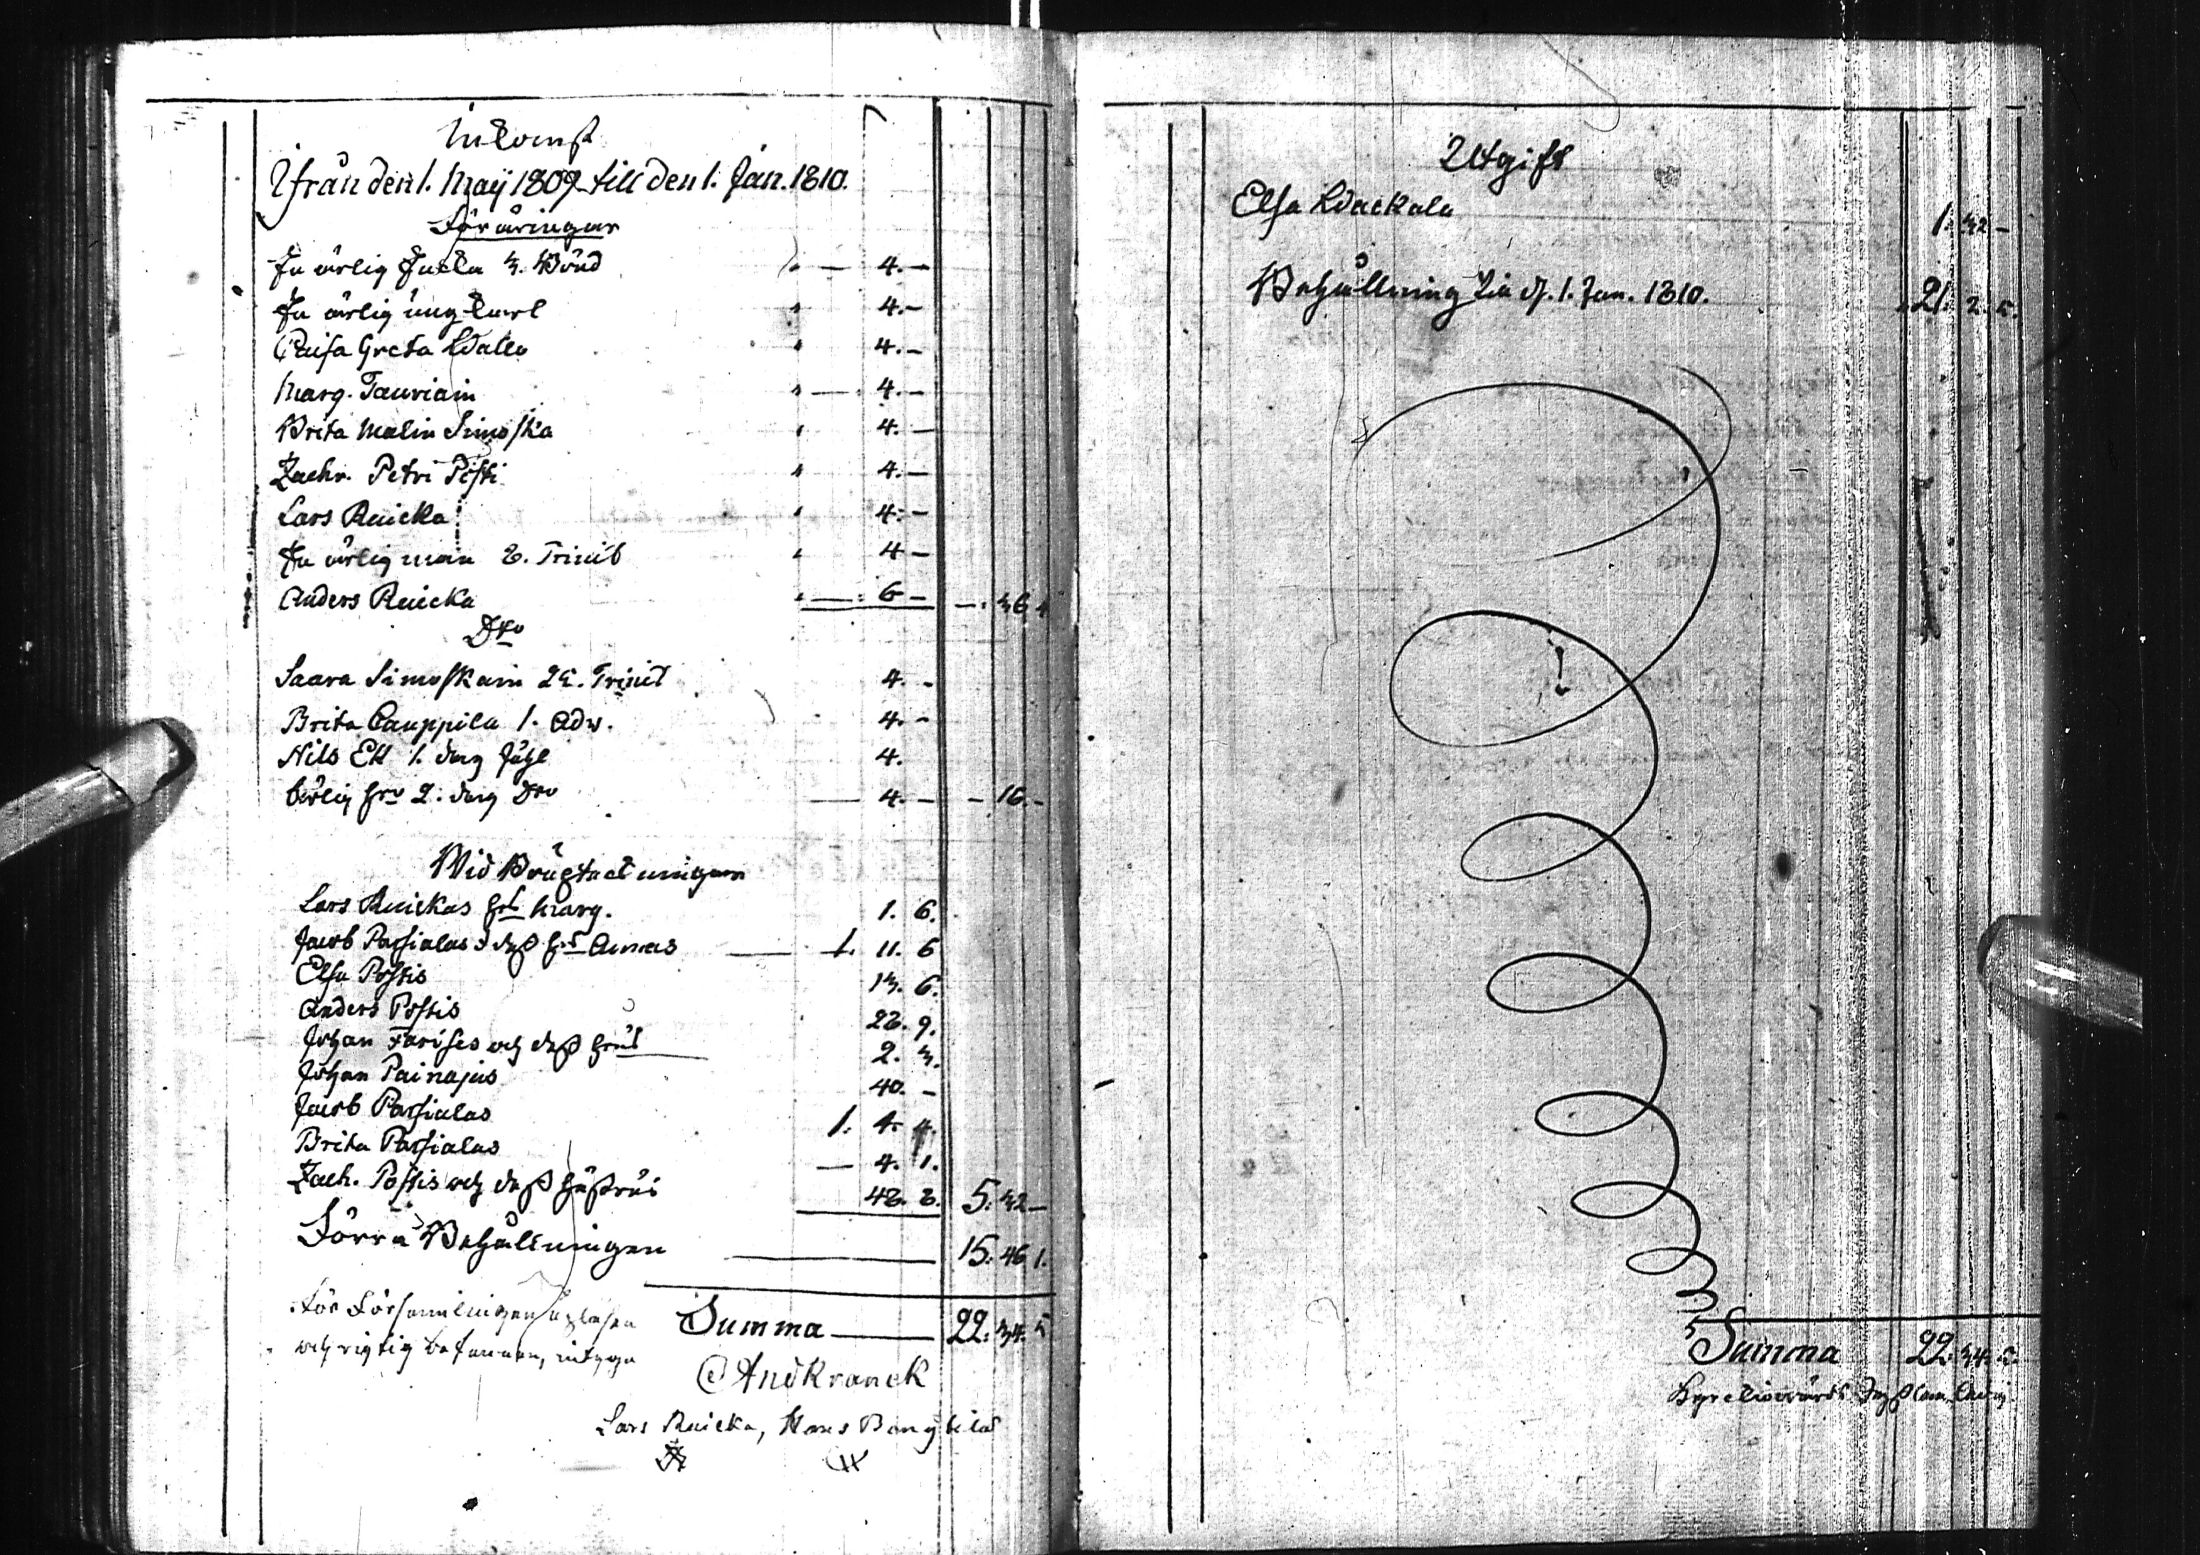 Inkomst
Ifrån den 1. Maij 1809 till den 1. Jan. 1810.
Föräringar
En ärlig Enkla 3. Bönd " — 4. —
En ärlig ung karl " 4. —
Caisa Greta Walle " 4. —
Marg. Tauriain " — 4. —
Brita Malin Simoska " 4. —
Zachr. Petri Pösti " 4. —
Lars Ruicka " 4. —
En ärlig man 8. Trinit " 4 —
Anders Ruicka " — 6 — —. 36. 4
Dto
Saara Simoskain 25. Trinit 4. —
Brita Cauppila 1. Adv. 4. —
Nils Ek 1. dag Juhl 4.
Ärlig hru 2. dag Dto — 4. — — 16. —
Wid Brugstaelningar
Lars Ruickas hru Marg. 1. 6.
Jacob Passialas och dess hru Annas — 1. 11. 6
Elsa Postis 13. 6.
Anders Postis 28. 9.
Johan Farises och dess hrus 2. 3.
Johan Painajus 40. —
Jacob Passialas 1. 4. 4.
Brita Passialas — 4. 1.
Zach. Postis och dess hustrus 48. 8. 5. 32 —
Förra Behållningen — 15. 46 1.
för Församlingen upläsen Summa — 22. 34. 5
och rigtig befunnen, intyga
And Kranck
Lars Ruicka, Hans Bangtila
Utgift
Elsa Wackala 1. 32 —
Behållning till d. 1. Jan. 1810. 21. 2. 5.
Summa 22. 34. 5.